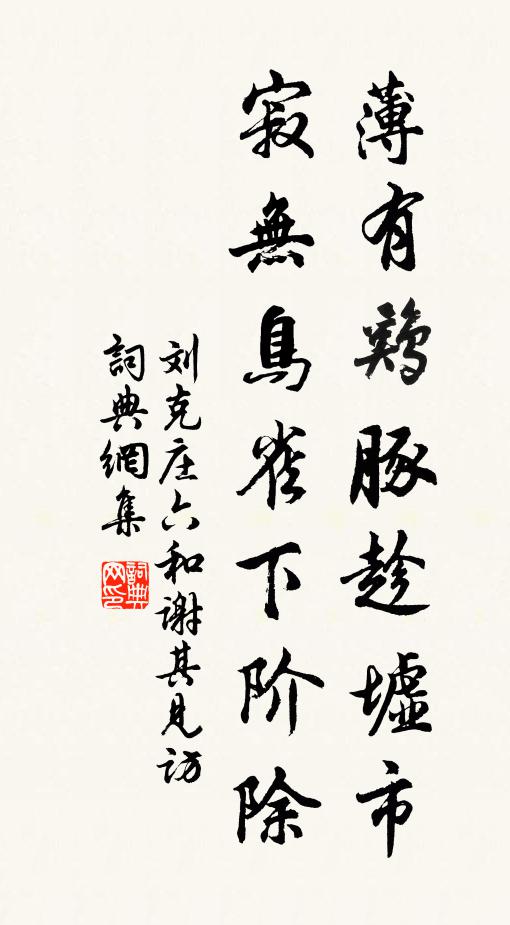 薄有鷄豚趁墟市
寂無鳥雀下阶除
刘克庄六和谢其見訪
詞典網集
詞典网印